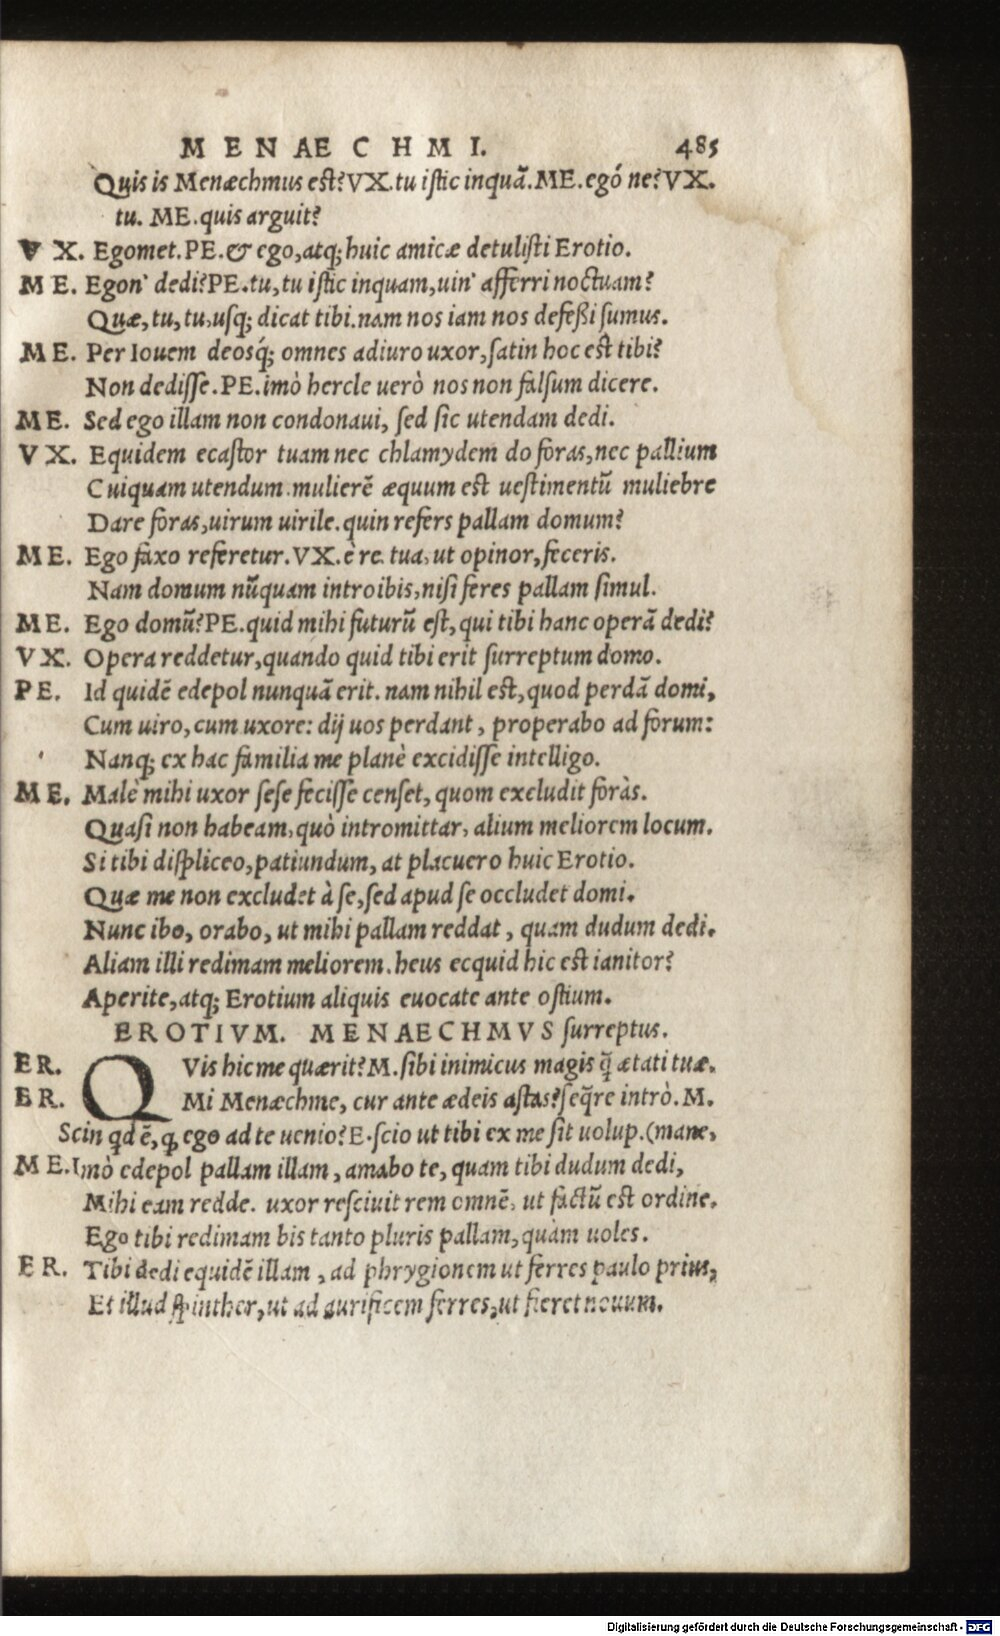 MENAECHMI. 485
Quis is Menæchmus est? VX. tu istic inquã. ME. egó ne? VX.
tu. ME. quis arguit?
VX. Egomet. PE. & ego, atq; huic amicæ detulisti Erotio.
ME. Egon' dedi? PE. tu, tu istic inquam, uin' afferri noctuam?
Quæ, tu, tu, usq; dicat tibi. nam nos iam nos defeßi sumus.
ME. Per Iouem deosq́; omnes adiuro uxor, satin hoc est tibi?
Non dedisse. PE. imò hercle uerò nos non falsum dicere.
ME. Sed ego illam non condonaui, sed sic utendam dedi.
VX. Equidem ecastor tuam nec chlamydem do foras, nec pallium
Cuiquam utendum. mulierẽ æquum est uestimentũ muliebre
Dare foras, uirum uirile. quin refers pallam domum?
ME. Ego faxo referetur. VX. è re tua, ut opinor, feceris.
Nam domum nũquam introibis, nisi feres pallam simul.
ME. Ego domũ? PE. quid mihi futurũ est, qui tibi hanc operã dedi?
VX. Opera reddetur, quando quid tibi erit surreptum domo.
PE. Id quidẽ edepol nunquã erit. nam nihil est, quod perdã domi,
Cum uiro, cum uxore: dij uos perdant, properabo ad forum:
Nanq; ex hac familia me planè excidisse intelligo.
ME. Malè mihi uxor sese fecisse censet, quom excludit foràs.
Quasi non habeam, quò intromittar, alium meliorem locum.
Si tibi displiceo, patiundum, at placuero huic Erotio.
Quæ me non excludet à se, sed apud se occludet domi.
Nunc ibo, orabo, ut mihi pallam reddat, quam dudum dedi.
Aliam illi redimam meliorem. heus ecquid hic est ianitor?
Aperite, atq; Erotium aliquis euocate ante ostium.
EROTIVM. MENAECHMVS surreptus.
ER. QVis hic me quærit? M. sibi inimicus magis q̃ ætati tuæ.
ER. Mi Menæchme, cur ante ædeis astas? seq̃re intrò. M.
Scin qd ẽ, q, ego ad te uenio? E. scio ut tibi ex me sit uolup. (mane,
ME. Imò edepol pallam illam, amabo te, quam tibi dudum dedi,
Mihi eam redde. uxor resciuit rem omnẽ, ut factũ est ordine.
Ego tibi redimam bis tanto pluris pallam, quàm uoles.
ER. Tibi dedi equidẽ illam, ad phrygionem ut ferres paulo prius,
Et illud spinther, ut ad aurificem ferres, ut fieret nouum.
Digitalisierung gefördert durch die Deutsche Forschungsgemeinschaft - DFG